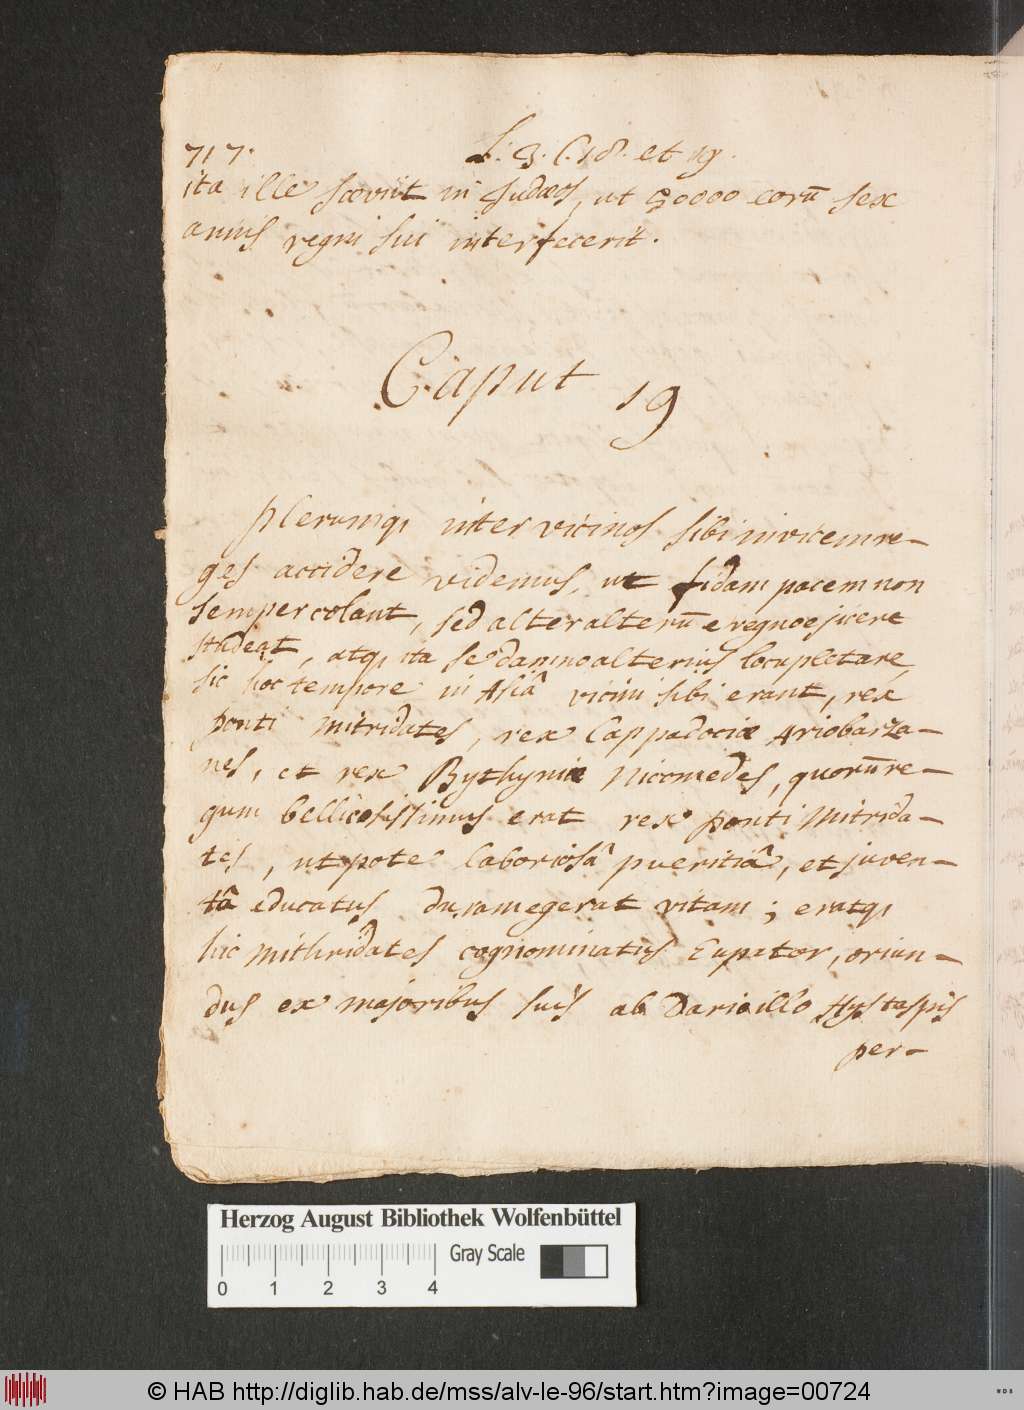 717.
L. 3. C. 18. et 19.
ita ille sævit in Judæos, ut 50000 eorū sex
annis regni sui interfecerit.
Caput 19
Plerumqı inter vicinos sibi invicem re-
ges accidere videmus, ut fidam pacem non
semper colant, sed alter alterū e regno ejicere
studeat, atqı ita se damno alterius locupletare,
sic hoc tempore in Asiâ vicini sibi erant, rex
Ponti Mitridates, rex Cappadociæ Ariobarza-
nes, et rex Bythyniæ Nicomedes, quorū re-
gum bellicosissimus erat rex Ponti Mitrida-
tes, utpote laboriosâ pueritiâ, et juven-
tâ educatus duram egerat vitam; eratqı
hic Mithridates cognominatus Eupator, oriun-
dus ex majoribus suis ab Dario illo Hystaspis
per-
Herzog August Bibliothek Wolfenbüttel
Gray Scale
0 1 2 3 4
© HAB http://diglib.hab.de/mss/alv-le-96/start.htm?image=00724